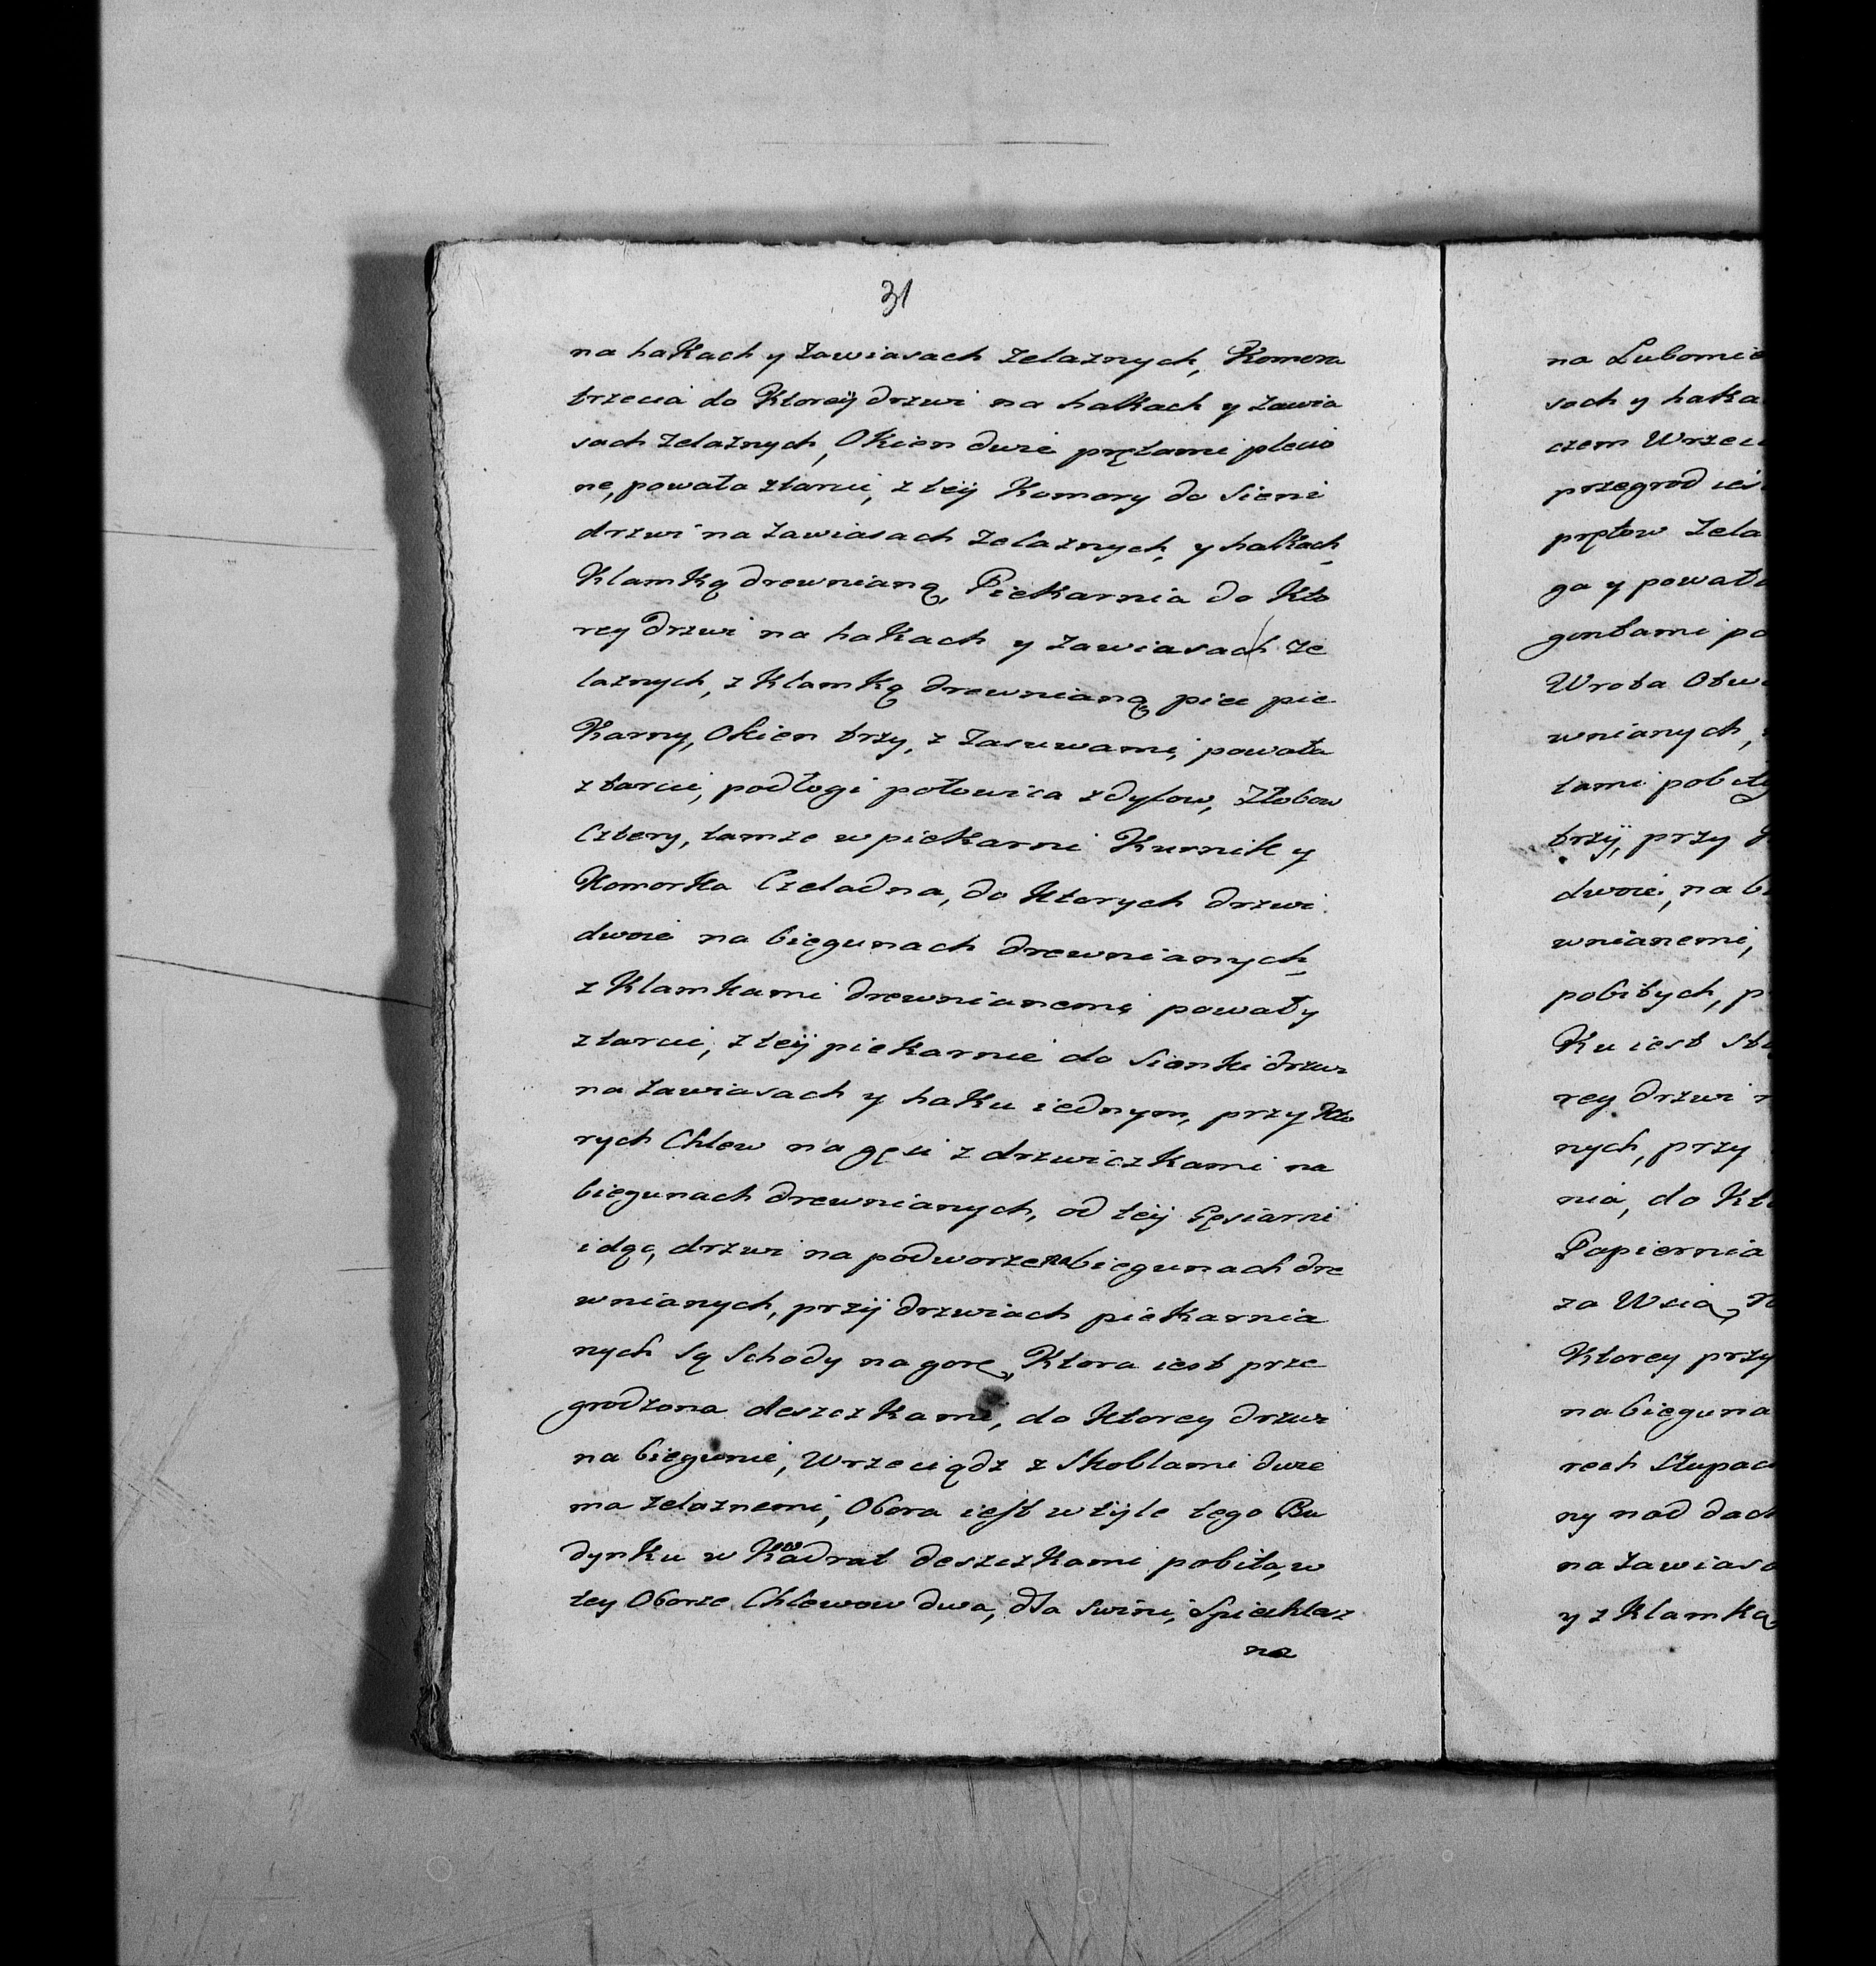 31
na hakach y zawiasach zelaznych, Komora
trzecia do Ktoreÿ drzwi na hakach y zawia
sach zelaznych, Okien dwie prętami plecio
ne, powała ztarcic, z teÿ Komory do Sieni
drzwi na zawiasach zelaznych, y hakach,
Klamką drewnianą, Piekarnia do Kto
rey drzwi na hakach y zawiasach ze
laznych, z Klamką drewnianą, piec pie
Karny, Okien trzy, z Zasuwami, powała
z tarcic, podłogi połowica z dylow, Złobow
Cztery, tamze w piekarni Kurnik y
Komorka Czeladna, do ktorych drzwi
dwoie na biegunach drewnianych,
z Klamkami drewnianemi, powały
z tarcic, z teÿ piekarnie do Sionki drzwi
na zawiasach y haku iednym, przy Kto
rych Chlew na gęsi z drzwiczkami na
biegunach drewnianych, od teÿ Gęsiarni
idąc, drzwi na podworze na biegunach dre
wnianych, przÿ drzwiach piekarnia
nych są Schody na gorę, Ktora iest prze
grodzona deszczkami, do Ktorey drzwi
na biegunie, Wrzeciądz z Skoblami dwie
ma zelaznemi, Obora iest w tÿle tego Bu
dynku w Kwadrat deszczkami pobita, w
tey Oborze Chlewow dwa, dla swini, Spichlerz
na
na Lubomie
sach y haka
czem Wrzec
przegrod ies
prętow Zela
ga y powała
gontami po
Wrota Otw
wnianych,
tami pobity
trzÿ, przy
dwoie, na b
wnianemi,
pobitych, p
Ku iest st
rey drzwi n
nych, przy
nia, do Kt
Papiernia
za Wsią,
Ktorey przy
na bieguna
rech Słupac
ny nad dach
na zawiasa
y z Klamką